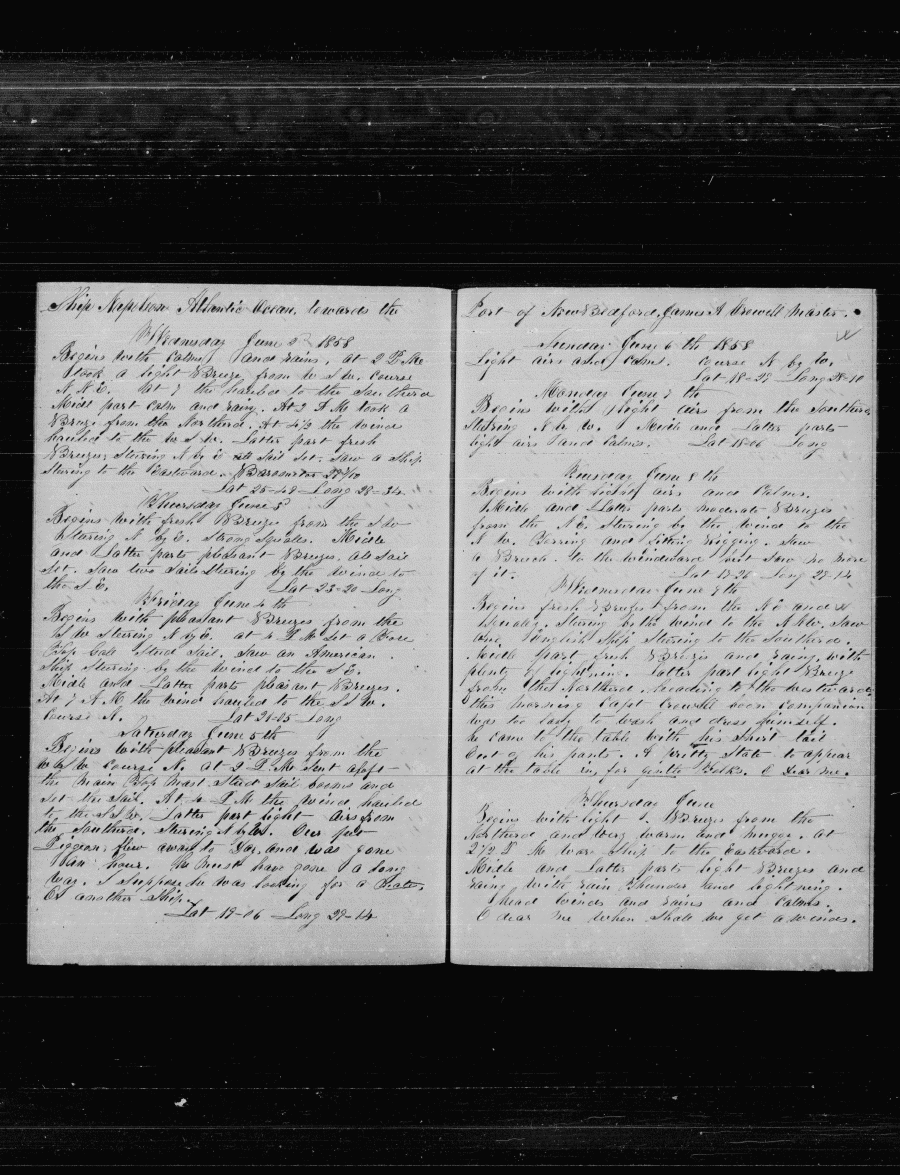 Ship Napoleon Atlantic Ocean, towards the
Wednesday June 2 1858
Begins with Calms and rains, at 2 P.M.
took a light Breeze from W S W. Course
N. N. E. At 7 the hauled to the Southerd
Midl part calm and rainy. At 2 A M took a
Breeze from the Northerd. At 4½ the wind
hauled to the W S W. Latter part fresh
Breezes, Stering N by E all Sail Set. Saw a Ship
Stering to the Eastward. Barrometer
Lat 25-49 Long 28-34
Thursday June 3
Begins with fresh Breeze from the S W
Stering N by E. Strong Squalls. Middle
and Latter parts pleasant Breezes, all Sail
Set. Saw two Sails Stering by the wind to
the S E. Lat 23-20 Long
Friday June 4 th
Begins with pleasant Breezes from the
S W Stering N by E. at 4 P M Set a Fore
Top Gale Stud Sail. Saw an American
Ship Stering by the wind to the S E.
Midle and Latter parts pleasant Breezes.
At 7 A M the wind hauled to the S S W.
Course N. Lat 21-05 Long
Saturday June 5 th
Begins with pleasant Breezes from the
W S W Course N. at 2 P. M. Sent aloft
the Main Top Mast Stud Sail boom and
Set the Sail. At 4 P M the wind hauled
to the S S W. Latter part light airs from
the Southerd. Stering N by W. Our
Pigeon flew away to Day, and was gone
1 an hour. He must have gone a long
way. I suppose he was looking for a Mate.
Or another Ship.
Lat 19-06 Long 29-14
Port of New Bedford, James A Crowell Master.
Sunday June 6 th 1858
Light airs and Calms. Course N by W.
Lat 18-27 Long 28-10
Monday June 7 th
Begins with light airs from the Southerd
Stering N by W. Midle and Latter parts
light airs and Calms. Lat 18-06 Long
Tuesday June 8 th
Begins with light airs and Calms.
Midle and Latter parts moderate Breezes
from the N E. Stering by the wind to the
N W. Tarring and fitting rigging. Saw
a Breach to the windward but Saw no more
of it. Lat 18-26 Long 29-14
Wednesday June 9 th
Begins fresh Breezes from the N E and
Squally. Stering by the wind to the N N W. Saw
one English Ship Stering to the Southerd.
Midle part fresh Breezes and rainy, with
plenty of lightning. Latter part light Breeze
from the Northerd. Heading to the westward
this morning Capt Crowell boon Companion
was too lazy to wash and dress himself.
he came to the table with his Shirt tail
Out of his pants. A pretty State to appear
at the table in, for gentle Folks. O Dear Me.
Thursday June
Begins with light Breezes from the
Northerd and very warm and muggy. at
2 1/2 P M. Ware Ship to the Eastward.
Midle and Latter parts light Breezes and
rainy with rain Thunder and lightning.
head winds and rains and Calms.
O dear me when Shall we get a winds.